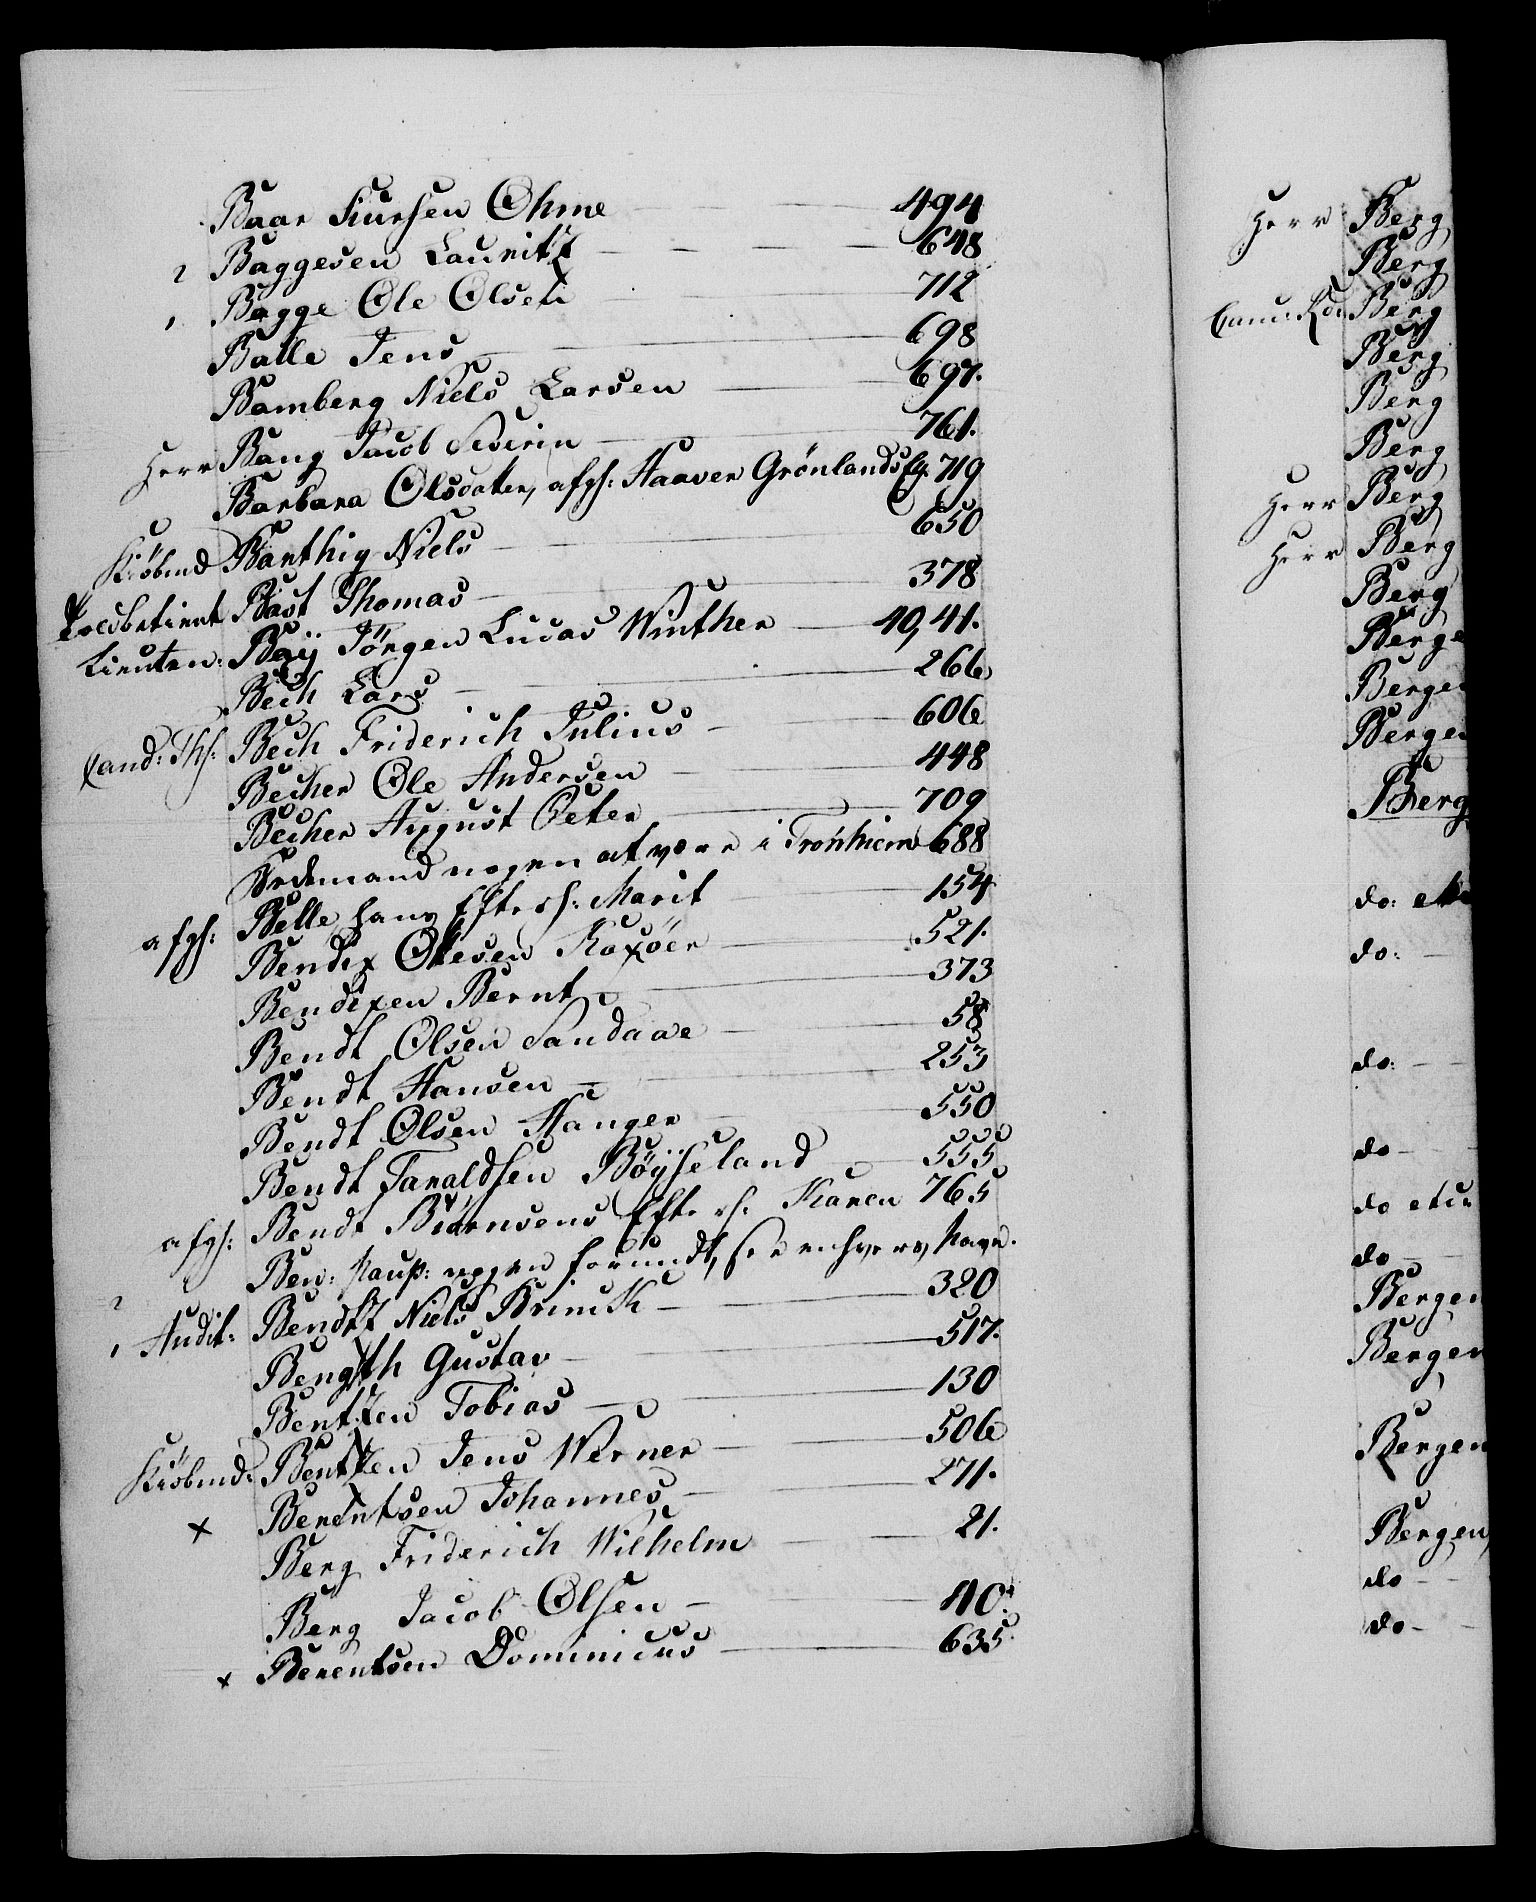 Baar Siursen Ohme 494
2 Baggesen Lauritz 648
1 Bagge Ole Olsen 712
Balle Jens 698
Bamberg Niels Larsen 697.
Herr Bang Jacob Severin 761.
Barbara Olsdatter, afgs: Haaver Grönlands Eg. 719
Kiöbmd Barthig Niels 650
Toldbetient Bast Thomas 378
Lieuten: Baÿ Jörgen Lucas Winther 40,41.
Bech Lars 266
Cand: Ths: Bech Friderich Julius 606
Becher Ole Andersen 448
Becher August Peter 709
nogen at være i Tronhiem 688
afgs: Belle hans Efters: Marit 154
Bendix Ottesen Roxöer 521.
Bendixen Bernt 373
Bendt Olsen Sandaae 58
Bendt Hansen 253
Bendt Olsen Hanger 550
Bendt Taraldsen Böÿseland 555
afgs: Bendt Biörnsens Efters: Karen 765
Ben: Kaup: nogen forundt, see enhvers Navn.
2 Audit: Bendtz Niels Brinck 320
1 Bength Gustav 517.
Bentzen Tobias 130
Kiöbmd: Bentzen Jens Werner 506
x Berentsen Johannes 271.
Berg Friderich Wilhelm 21.
Berg Jacob Olsen 40.
x Berentsen Dominicus 635.
Herr Berg
Berg
Berg
Berg
Berg
Berg
Herr Berg
Herr Berg
Berg
Berge
Bergen
Bergen
Berg
do:
do:
do:
do
do
do
Bergen
Bergen
Bergen
Bergen
do
do